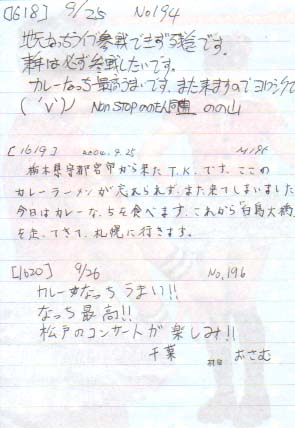 [1618] 9/25 No194
地元なっちライブ参戦できず残念です。
来年は必ず参戦したいです。
カレーなっち最高うまいです。また来ますのでヨロシクです
('v') NON STOPののたん同盟 ののム
[1619] 2004.9.25 No195
栃木県宇都宮市から来たT.K.です。ここの
カレーラーメンが忘れられず、また来てしまいました
今日はカレーなっちを食べます。これから「白鳥大橋」
を走ってきて、札幌に行きます。
[1620] 9/26 No,196
カレーなっちうまい!!
なっち最高!!
松戸のコンサートが楽しみ!!
千葉 おさむ